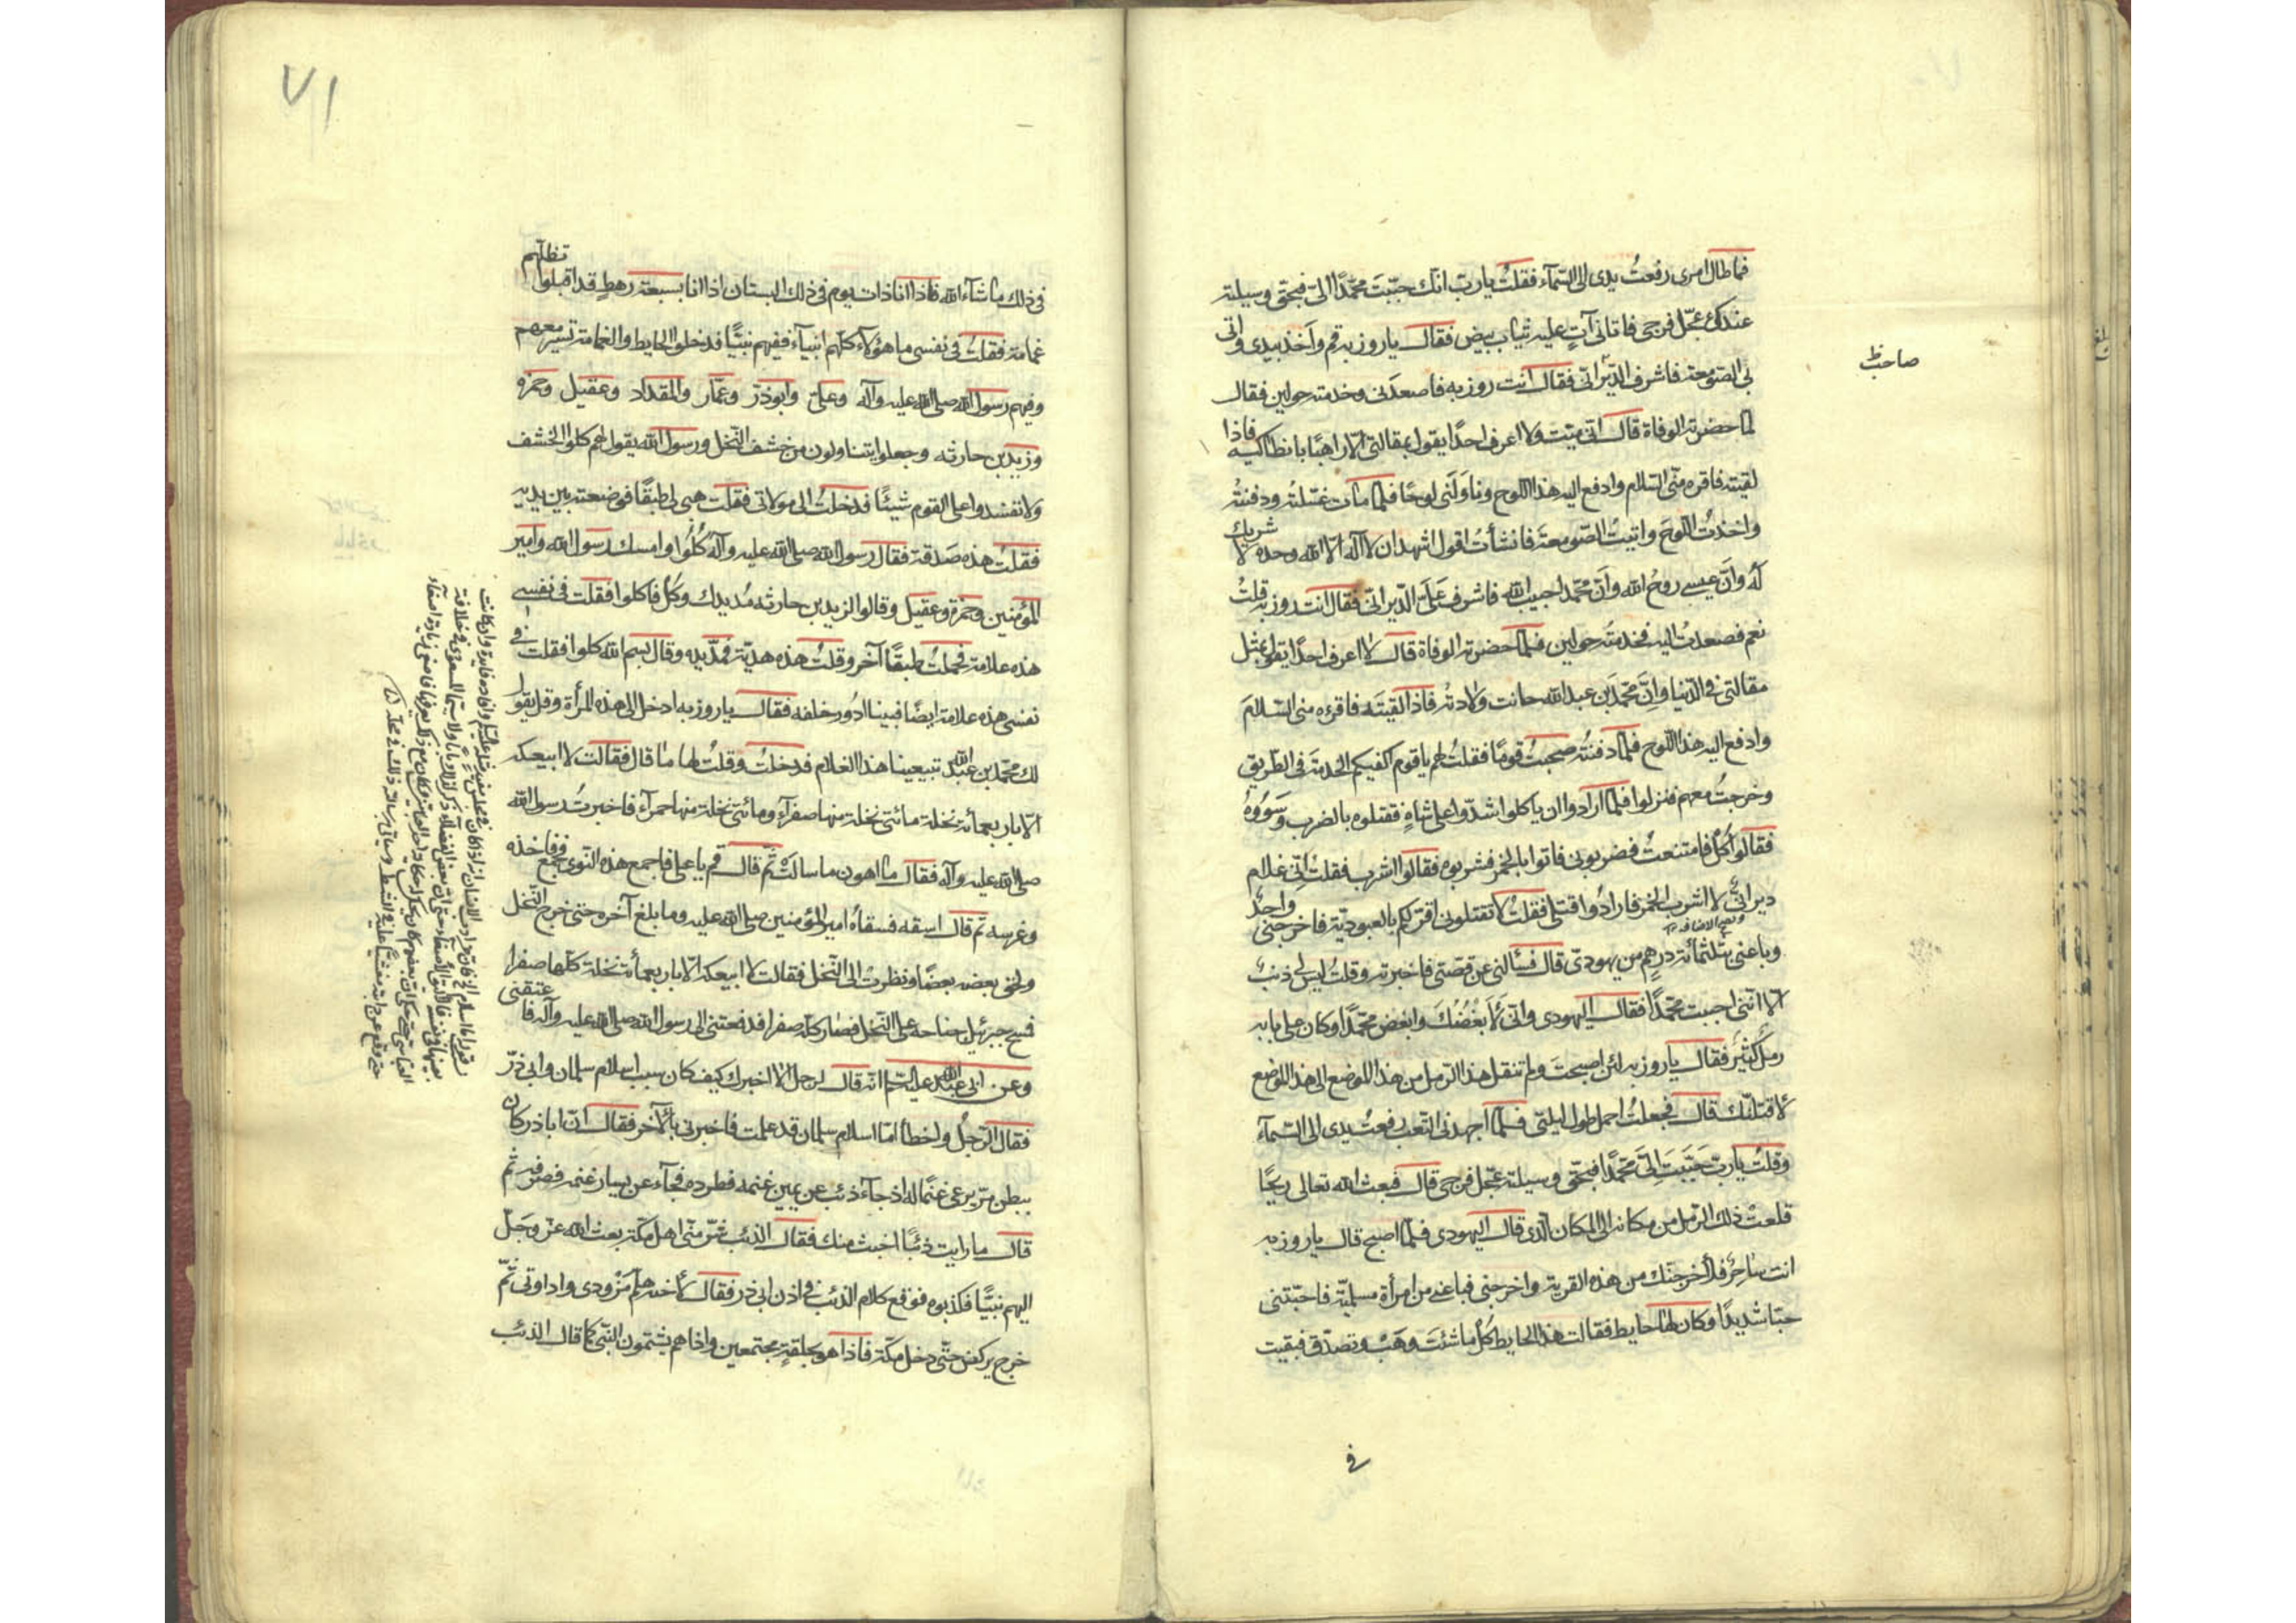 فما طال امرى رفعتُ يدى الى السّمآء فقلتُ يا ربّ انّك حبّبتَ محمّدًا الىّ فبحقّ وسيلته
عندك عجّل فرجى فاتانى آتٍ عليه ثياب بيض فقال يا روزبه قم واَخذ بيدى واتى
بى الصّومعة فاشرف الدّيرانى فقال انت روزبه فاصعدنى وخدمته حولين فقال
صاحب ظ
لما حضرته الوفاة قال انى ميّت ولا اعرف احدًا يقول بمقالتى الّا راهبًا بانطاكيه فاذا
لقيته فاقره منّى السّلام وادفع اليه هذا اللوح وناولنى لوحًا فلمّا مات غسّلته ودفنتُه
واخذتُ اللّوحَ واتيتُ الصّومعة فانشأت اقول اشهد ان لا اله الّا الله وحده لا شريك
له وانّ عيسى روحُ الله وانّ محمّد احبيب الله فاشرف عَلَىَّ الدّيرانىّ فقال انت روزبه قلتُ
نعم فصعدتُ اليه فخدمتُه حولين فلمّا حضرته الوفاة قال لا اعرف احدًا يقول بمثل
مقالتى فى الدّنيا وانّ محمّدَ بن عبد الله حانت ولادته فاذا القيتَه فاقرءه منى السّلامَ
وادفع اليه هذا اللّوح فلمّا دفنتُه صحبتُ قومًا فقلتُ لهم يا قوم اكفيكم الخدمة فى الطّريق
وخرجتُ معهم فنزلوا فلمّا ارادوا ان ياكلوا شدّوا على شاةٍ فقتلوه بالضرب وشَوَوُوهُ
فقالوا كُلْ فامتنعتُ فضربونى فاتوا بالخمر فشربوه فقالوا اشرب فقلتُ انّى غلام
ديرانىٌّ لا اشرب الخمر فارادُوا قتلى فقلتُ لا تقتلونى اقرّ لكم بالعبوديّة فاخرجنى واحِدٌ
وباعنى بثلثمائة درهم من يهودىّ قال فسئالنى عن قصّتى فاخبرته وقلتُ ليس لى ذنب
الّا انّنى احببت محمّدًا فقال اليهودى وانّى لَاَبْغُضُكَ وابغض محمّدًا وكان على بابه
رملٌ كَثيرٌ فقال يا روزبه لئن اصبحتَ ولم تنقل هذا الرّمل من هذا الموضع الى هذا الموضع
لاقتلنّك قال فجعلتُ احمل طول ليلتى فلمّا اجهدنى التّعب رفعتُ يدى الى السّمآء
وقلتُ يا ربّ حَبَّبتَ اِلىّ محمّدًا فبحقّ وسيلته عجّل فرجى قال فبعث الله تعالى ريحًا
قلعتْ ذلك الرّمل من مكانه الى المكان الّذى قال اليهودى فلمّا اصبح قال يا روزبه
انت ساحِرٌ فلأخرجنّك من هذه القرية واخرجنى فباعنى من امرأة مسلميّة فاحبّتنى
حبّا شديدًا وكان لها حايط فقالت هذا الحايط كُلْ ما شئتَ وهَبْ وتصدّق فبقيت
فى
٧١
فى ذلك ما شآء الله فاذا انا ذات يوم فى ذلك البستان اذا انا بسبعة رهطٍ قد اقبلوا تظلّهم
غمامة فقلتُ فى نفسى ما هؤلآء كلّهم انبيآء ففيهم نبيًّا فدخلوا الحايط والغمامة تسير معهم
وفيهم رسول الله صلى الله عليه وآله وعلىّ وابوذرّ وعمّار والمقداد وعقيل وحمزه
وزيد بن حارثه وجعلوا يتناولون من خشف النّخل ورسول الله يقول لهم كلوا الخشف
ولا تفسدوا على القوم شيئًا فدخلتُ الى مولاتى فقلت هبى لى طبقًا فوضعته بين يديه
فقلتُ هذه صَدقة فقال رسول الله صلى الله عليه وآله كُلُوا وامسك رسول الله وامير
المؤمنين وحمزة وعقيل وقالوا لزيد بن حارثه مُد يدك وكُلْ فاكلوا فقلت فى نفسى
هذه علامة فحملتُ طبقًا آخر وقلتُ هذه هديّة فمدّ يده وقال بسم الله كلوا فقلت فى
نفسى هذه علامة ايضًا فبينا ادُور خلفه فقال يا روزبه ادخل الى هذه المرأة وقل يقول
لك محمّد بن عبد الله تبيعينا هذا الغلام فدخلتُ وقلتُ لها ما قال فقالت لا ابيعكه
الّا باربعمأئة نخلة مائتى نخلة منها صفرآء ومائتى نخلة منها حمرآء فاخبرتُ رسول الله
صلى الله عليه وآله فقال ما اهون ما سالَتْ ثمّ قال قم يا على فاجمع هذه النّوى فجمع فاخذه
وغرسه ثم قال اسقه فسقاهُ امير المؤمنين صلى الله عليه وما بلغ آخره حتى خرج النّخل
ولحق بعضه بعضًا ونظرتْ الى النّخل فقالت لا ابيعكه الّا باربعمأئة نخلة كلّها صفرا
فمسح جبرئيل جناحه على النّخل فصار كلّه صفرا فدفعتنى الى رسول الله صلى الله عليه وآله فاعتقنى
وعن ابى عبد الله عليه السّلم انّه قال لرجل الا اخبرك كيف كان سبب اسلام سلمان وابى ذرّ
فقال الرّجلُ واخطأ امّا اسلام سلمان قد علمت فاخبرنى بالآخر فقال انّ اباذر كان
ببطن مرّ يرعى غنمًا له اذ جآء ذئب عن يمين غنمه فطرده فجآء عن يسار غنمه فصرفه ثم
قال ما رايت ذئبًا اخبث منك فقال الذئب شرّ منّى اهل مكّة بعث الله عزّ وجلّ
اليهم نبيًّا فكذبوه فوقع كلام الذئب فى اذن ابى ذر فقال لأخته هلمّ مَزْودى واداوتى ثمّ
خرج يركض حتّى دخل مكّة فاذا هو بحلقةٍ مجتمعين واذا هم يشتمون النّبى كما قال الذئب